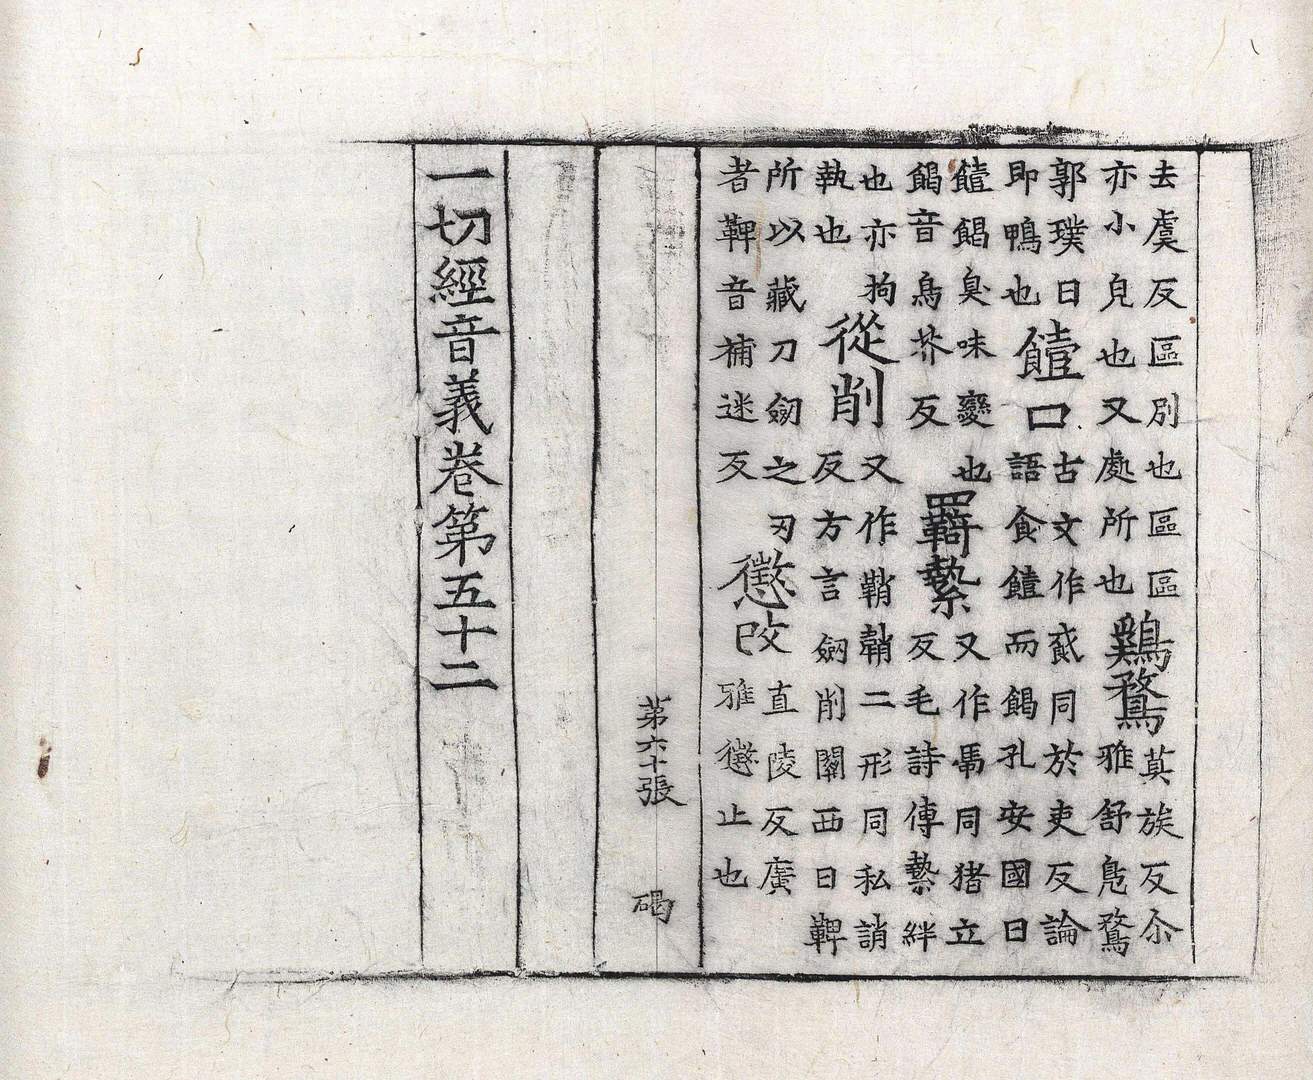 去虞反區別也區區亦小皃也又處所也鷄鶩莫族反尒雅舒鳬鶩
郭璞曰即鴨也饐口古文作同於吏反論語食饐而餲孔安國曰
饐餲臭味變也餲音烏芥反羈縶又作馽同猪立反毛詩傳縶絆
也亦拘執也從削又作鞘韒二形同私誚反方言劒削關西曰鞞
所以藏刀劒之刃者鞞音補迷反懲改直陵反廣雅懲止也
第六十張 碣
一切經音義卷第五十二